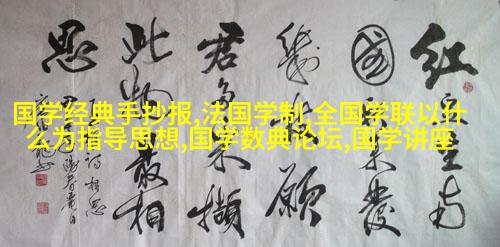 国学经典手抄报,法国学制,全国学联以什
么为指导思想,国学数典论坛,国学讲座
红豆生南
國春来發
幾枝願
君多采撷
此物最相
思